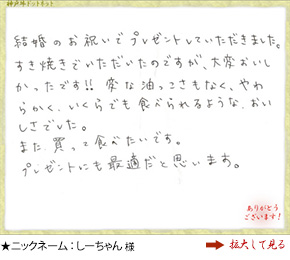 神戸牛ドットネット
結婚のお祝いでプレゼントしていただきました。
すき焼きでいただいたのですが、大変おいし
かったです!! 変な油っこさもなく、やわ
らかく、いくらでも食べられるような、おい
しさでした。
また、買って食べたいです。
プレゼントにも最適だと思います。
ありがとう
ございます!
★ニックネーム：しーちゃん 様
拡大して見る